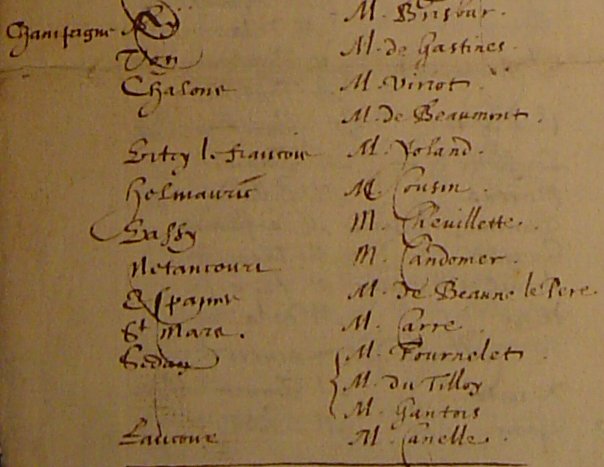 Champaigne Ay M. Brisour.
M. de Gastines.
Chalons M. Viriot
M. de Beaumont.
Vitry le francois M. Joland.
Helmauric M. Cousin.
Vassy M. Chevillette.
Netancourt M. Candomer.
Espagne M. De Beaune le Pere.
St Mars. M. Carré
Sedan M. Fournelet
M. du Tilloy
M. Gantois
Raucour M. Canelle.